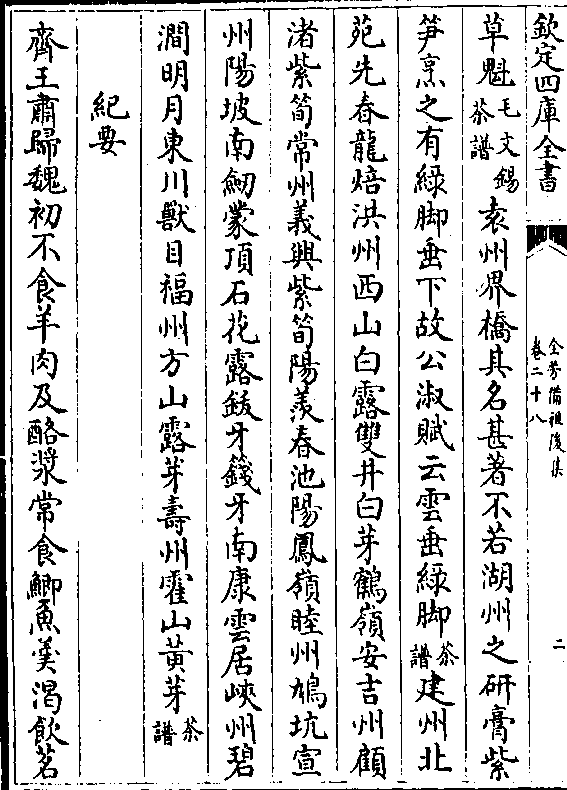 欽定四庫全書
全芳備祖後集
卷二十八
二
草魁毛文錫茶譜袁州界橋其名甚著不若湖州之研膏紫
笋烹之有緑脚垂下故公淑賦云雲垂緑脚茶譜建州北
苑先春龍焙洪州西山白露雙井白芽鶴嶺安吉州顧
渚紫筍常州義興紫筍陽羡春池陽鳳嶺睦州鳩坑宣
州陽坡南劒蒙頂石花露鋑牙籛牙南康雲居峽州碧
澗明月東川獸目福州方山露芽壽州霍山黃芽茶譜
紀要
齊王肅歸魏初不食羊肉及酪漿常食鯽魚羹渴飲茗